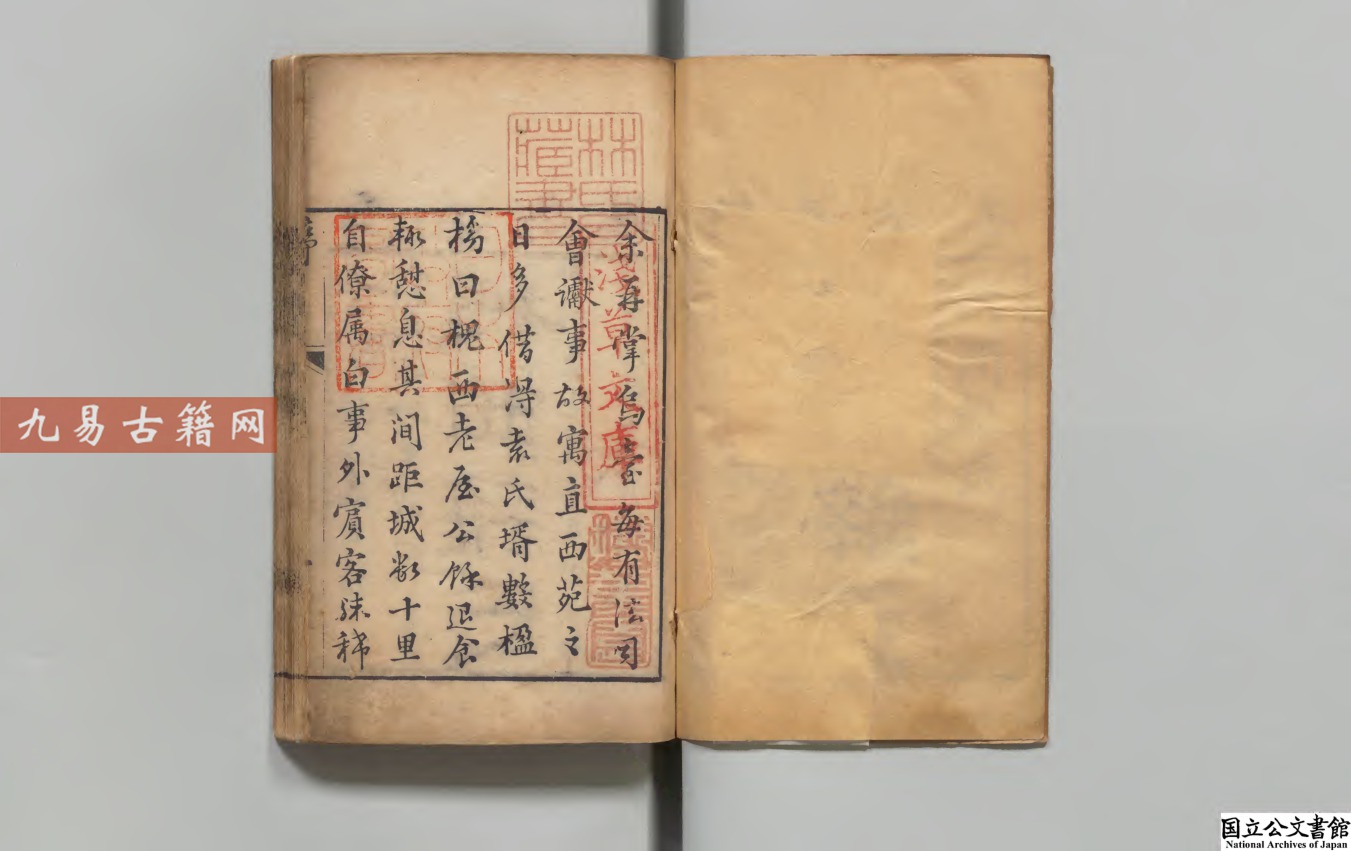 余再掌烏臺每有法司
會讞事故寓直西苑之
日多借得袁氏壻數楹
榜曰槐西老屋公餘退食
輒憩息其間距城數十里
自僚属白事外賓客殊稀
序
林氏
藏書
淺草文庫
九易古籍网
国立公文書館
National Archives of Japan